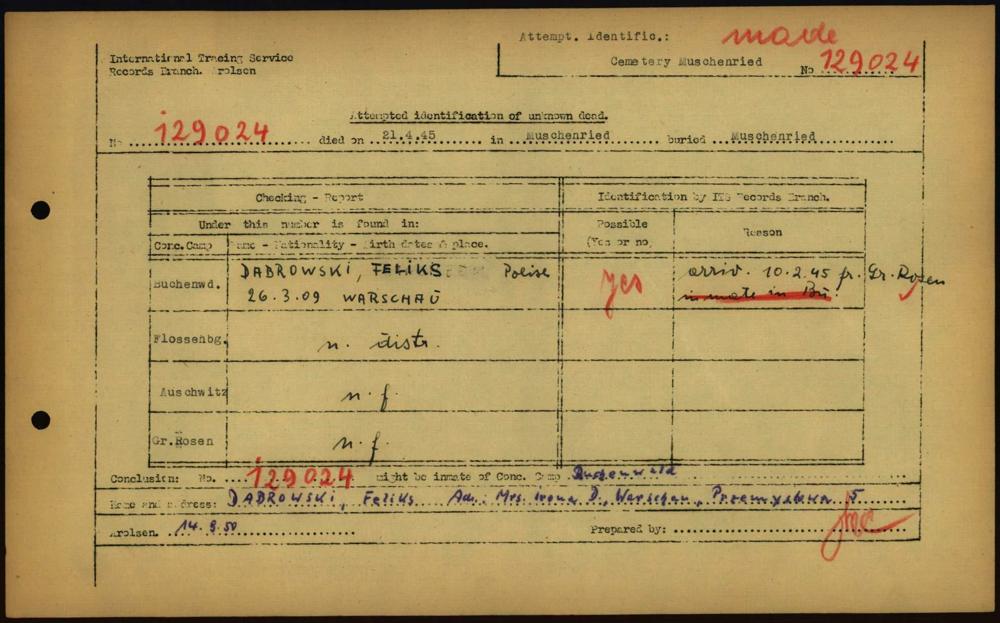 Attempt. Identific.: made
International Tracing Service
Records Branch. Arolsen
Cemetery Muschenried
No 129024
Attempted identification of unknown dead.
No 129024 died on 21.4.45 in Muschenried buried Muschenried
Checking - Report
Identification by ITS Records Branch.
Under this number is found in:
Possible
(Yes or no)
Reason
Conc. Camp
Name - Nationality - Birth dates & place.
Buchenwd.
DABROWSKI, FELIKS Polise
26.3.09 WARSCHAU
yes
arriv. 10.2.45 fr. Gr. Rosen
inmate in Bu
Flossenbg.
n. distr.
Auschwitz
n. f.
Gr. Rosen
n. f.
Conclusion: No. 129024 might be inmate of Conc. Camp Buchenwald
Home and address: DABROWSKI, Feliks Ad.: Mrs. Irena D., Warschau, 5
Arolsen. 14. 9. 50
Prepared by: